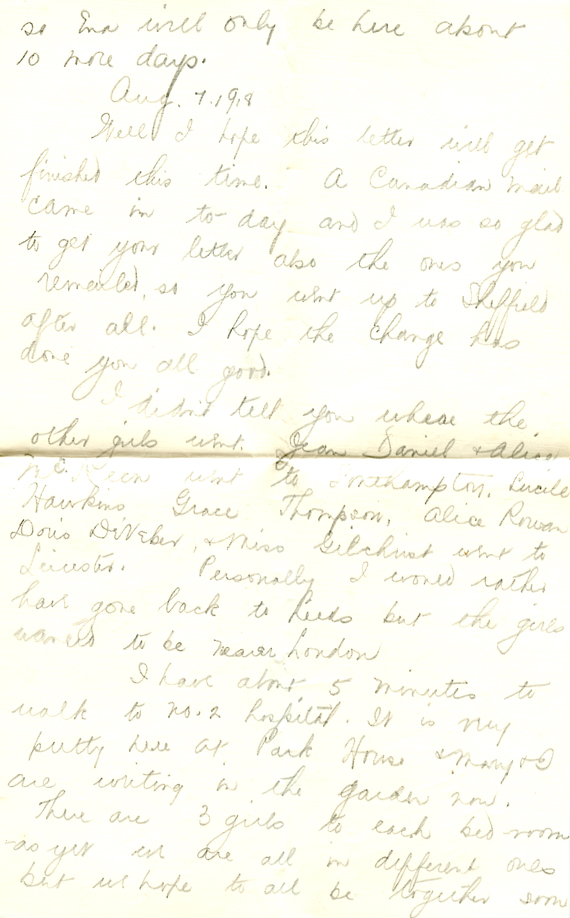 so Ena will only be here about
10 more days.
Aug. 7. 1918
Well I hope this letter will get
finished this time. A Canadian mail
came in to-day and I was so glad
to get your letter also the ones you
remailed, so you went up to Sheffield
after all. I hope the change has
done you all good.
I didn't tell you where the
other girls went. Jean Daniel & Alice
McKeen went to Southampton, Lucile
Hawkins Grace Thompson, Alice Rowan
Doris DeVeber, & Miss Gilchrist went to
Leicester. Personally I would rather
have gone back to Leeds but the girls
wanted to be nearer London
I have about 5 minutes to
walk to no. 2 hospital. It is very
pretty here at Park House & Mary & I
are writing in the garden now.
There are 3 girls to each bed-room
as yet we are all in different ones
but we hope to all be together soon